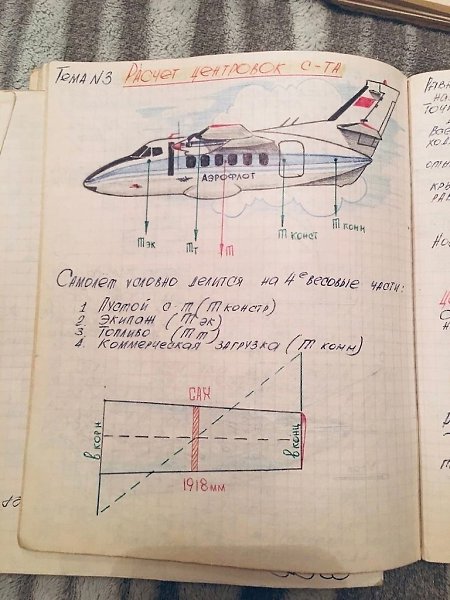 Тема N3 Расчет центровок с-та
АЭРОФЛОТ
m эк
m т
m
m конст
m комм
Самолет условно делится на 4е весовые части:
1 Пустой с-т (m констр)
2. Экипаж (m эк)
3. Топливо (m т)
4. Коммерческая загрузка (m комм)
САХ
b корн
b конц
1918 мм